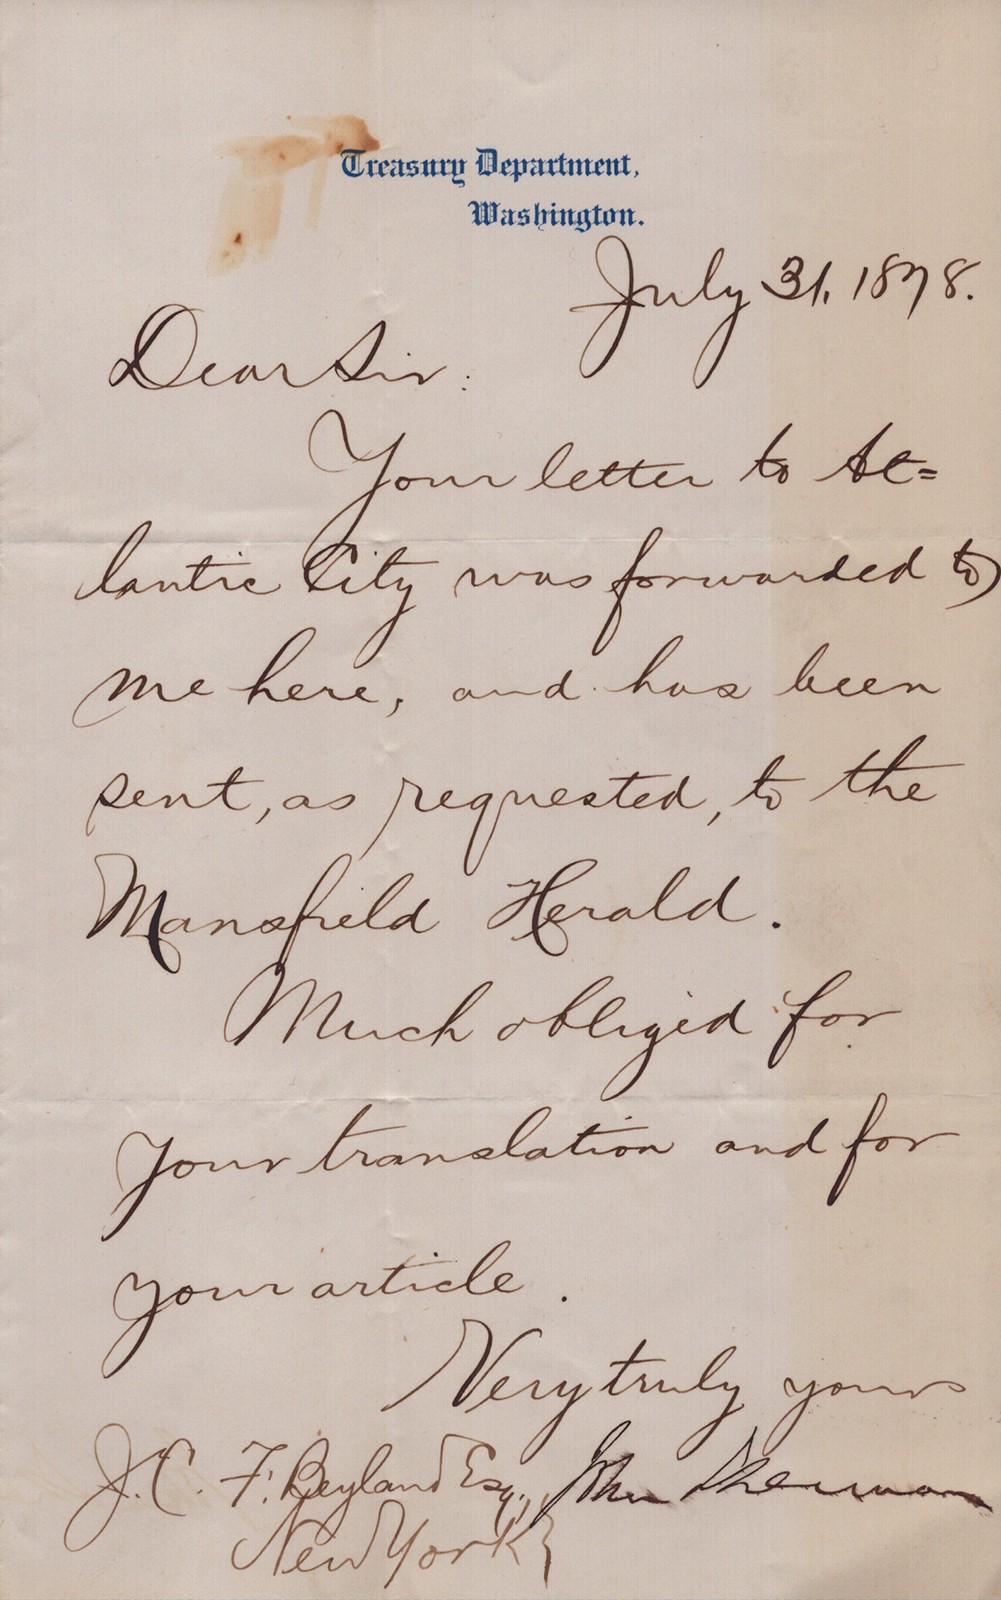 Treasury Department,
Washington.
July 31, 1878.
Dear Sir:
Your letter to At=
lantic City was forwarded to
me here, and has been
sent, as requested, to the
Mansfield Herald.
Much obliged for
your translation and for
your article.
Very truly yours
John Sherman
J. C. F. Beyland Esq.,
New York